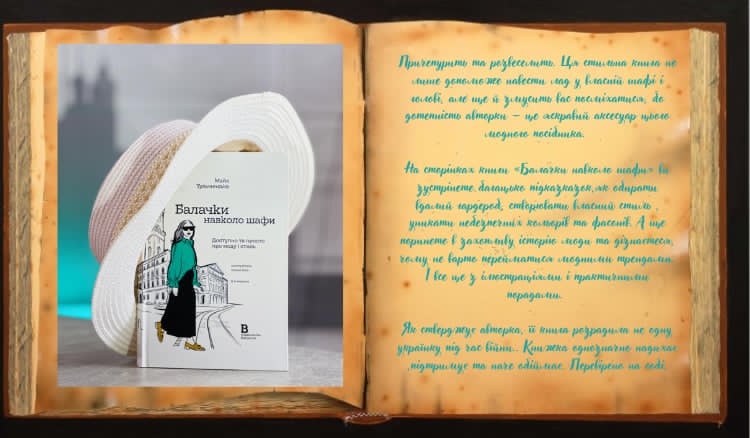 Майя
Тульчинська
Балачки
навколо шафи
Доступно та просто
про моду і стиль
В
Причепурить та розвеселить. Ця стильна книга не
лише допоможе навести лад у власній шафі і
голові, але ще й змусить вас посміхатися, бо
дотепність авторки – це яскравий аксесуар цього
модного посібника.
На сторінках книги «Балачки навколо шафи» ви
зустрінете багацько підказказок,як обирати
вдалий гардероб, створювати власний стиль ,
уникати небезпечних кольорів та фасонів. А ще
поринете в захопливу історію моди та дізнаєтеся,
чому не варто перейматися модними трендами.
І все це з ілюстраціями і практичними
порадами.
Як стверджує авторка, її книга розрадила не одну
українку під час війни.. Книжка однозначно надихає
,підтримує та наче обіймає. Перевірено на собі.